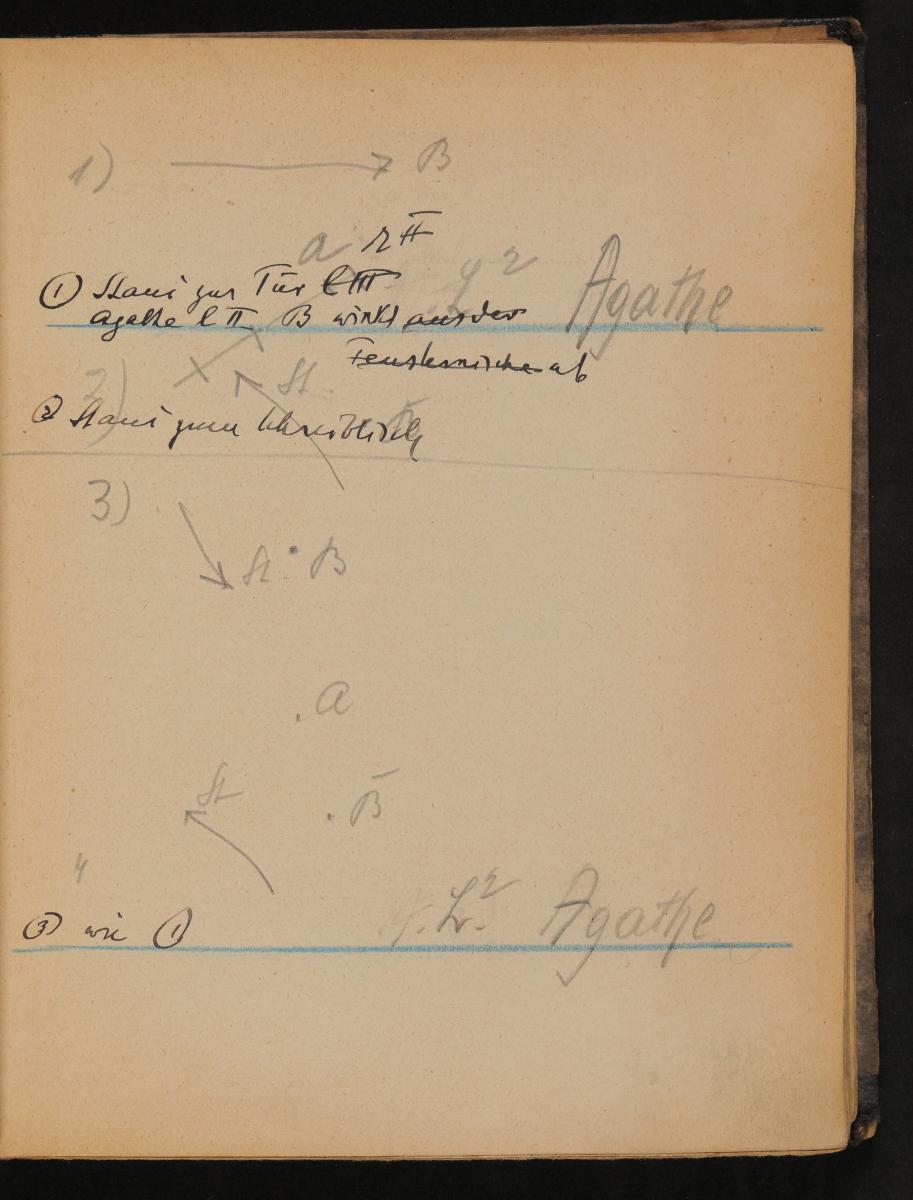 1) B
a r II
① Stani zur Tür l III L² Agathe
Agathe l II B winkt aus der
Fensternische ab
2) St.
② Stani zum Schreibtisch
3)
St B
a
St
B
4
L² Agathe
③ wie ①